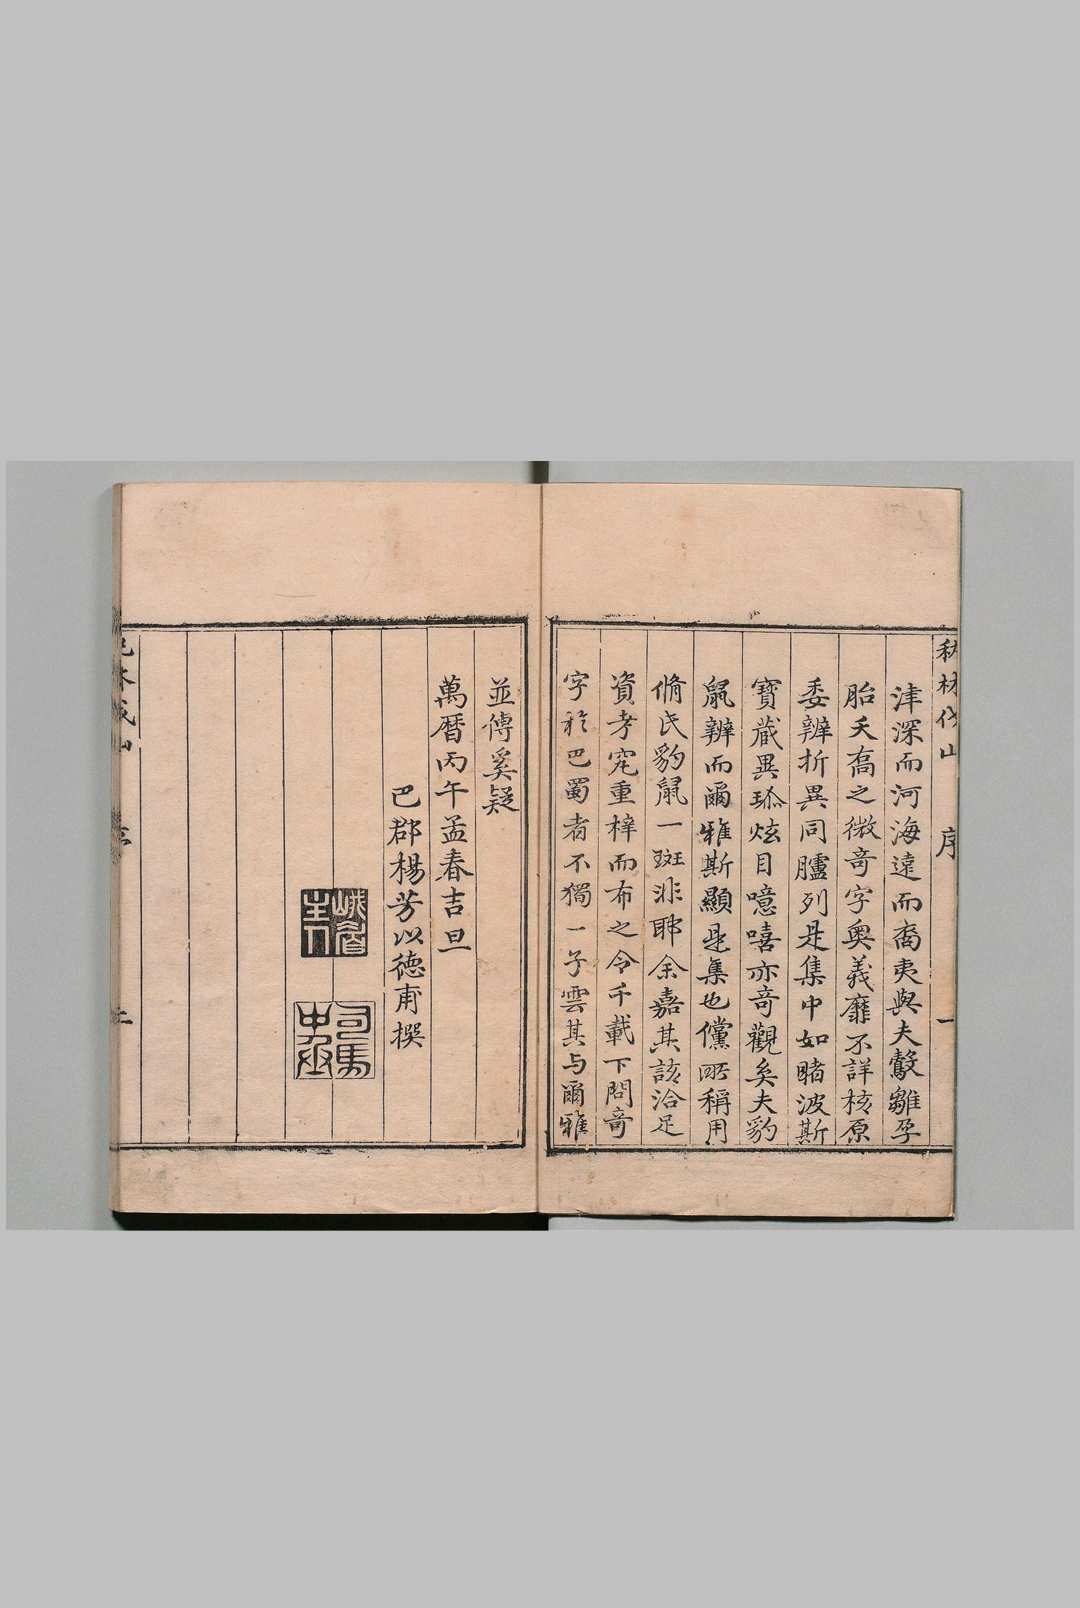 秇林伐山 序 一
津深而河海遠而裔夷與夫鷇雛孕
胎夭喬之微奇字奧義靡不詳核原
委辨折異同臚列是集中如睹波斯
寶藏異珎炫目噫嘻亦奇觀矣夫豹
鼠辨而爾雅斯顯是集也儻所稱用
脩氏豹鼠一斑非耶余嘉其該洽足
資考究重梓而布之令千載下問奇
字於巴蜀者不獨一子雲其与爾雅
並傳奚疑
萬曆丙午孟春吉旦
巴郡楊芳以德甫撰
司馬中丞